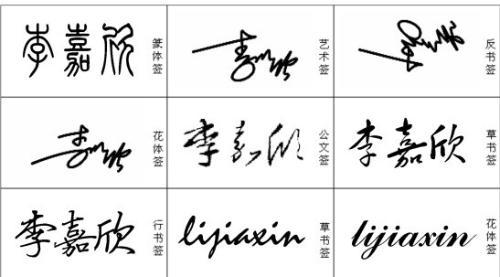 李嘉欣 篆体签
李嘉欣 艺术签
李嘉欣 反书签
李嘉欣 花体签
李嘉欣 公文签
李嘉欣 草书签
李嘉欣 行书签
lijiaxin 草书签
lijiaxin 花体签